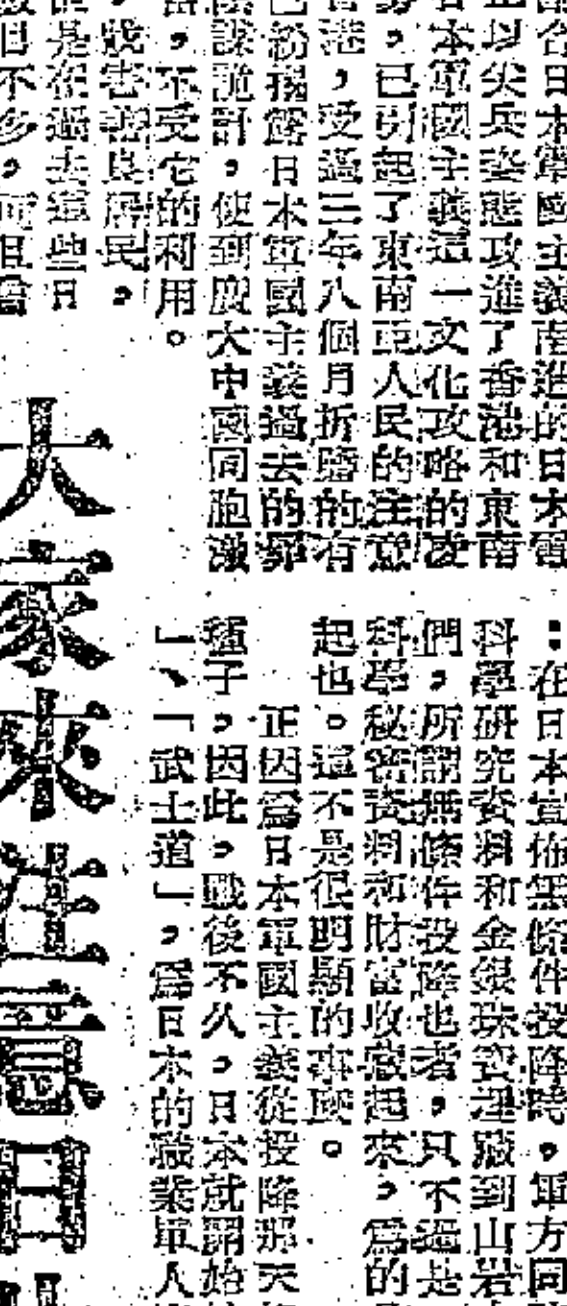 部合日本軍國主義南進的日本電
正以尖兵姿態攻進了香港和東南
日本軍國主義這一文化攻略的凌
勢,已引起了東南亞人民的注意
香港,受過三年八個月折磨的有
已紛揭露日本軍國主義過去的罪
陰謀詭計,使到廣大中國同胞激
,不受它的利用。
戕害善良居民。,
是在過去這些日
但不多,而且當
:在日本宣佈無條件投降時,軍方同
科學研究資料和金銀珠寶埋藏到山岩
們,所謂無條件投降也者,只不過是
科學秘密資料和財富收藏起來,爲的
起也。這不是很明顯的事實。
正因爲日本軍國主義從投降那天
種子,因此,戰後不久,日本就開始
」、「武士道」,爲日本的職業軍人
大家來注意日